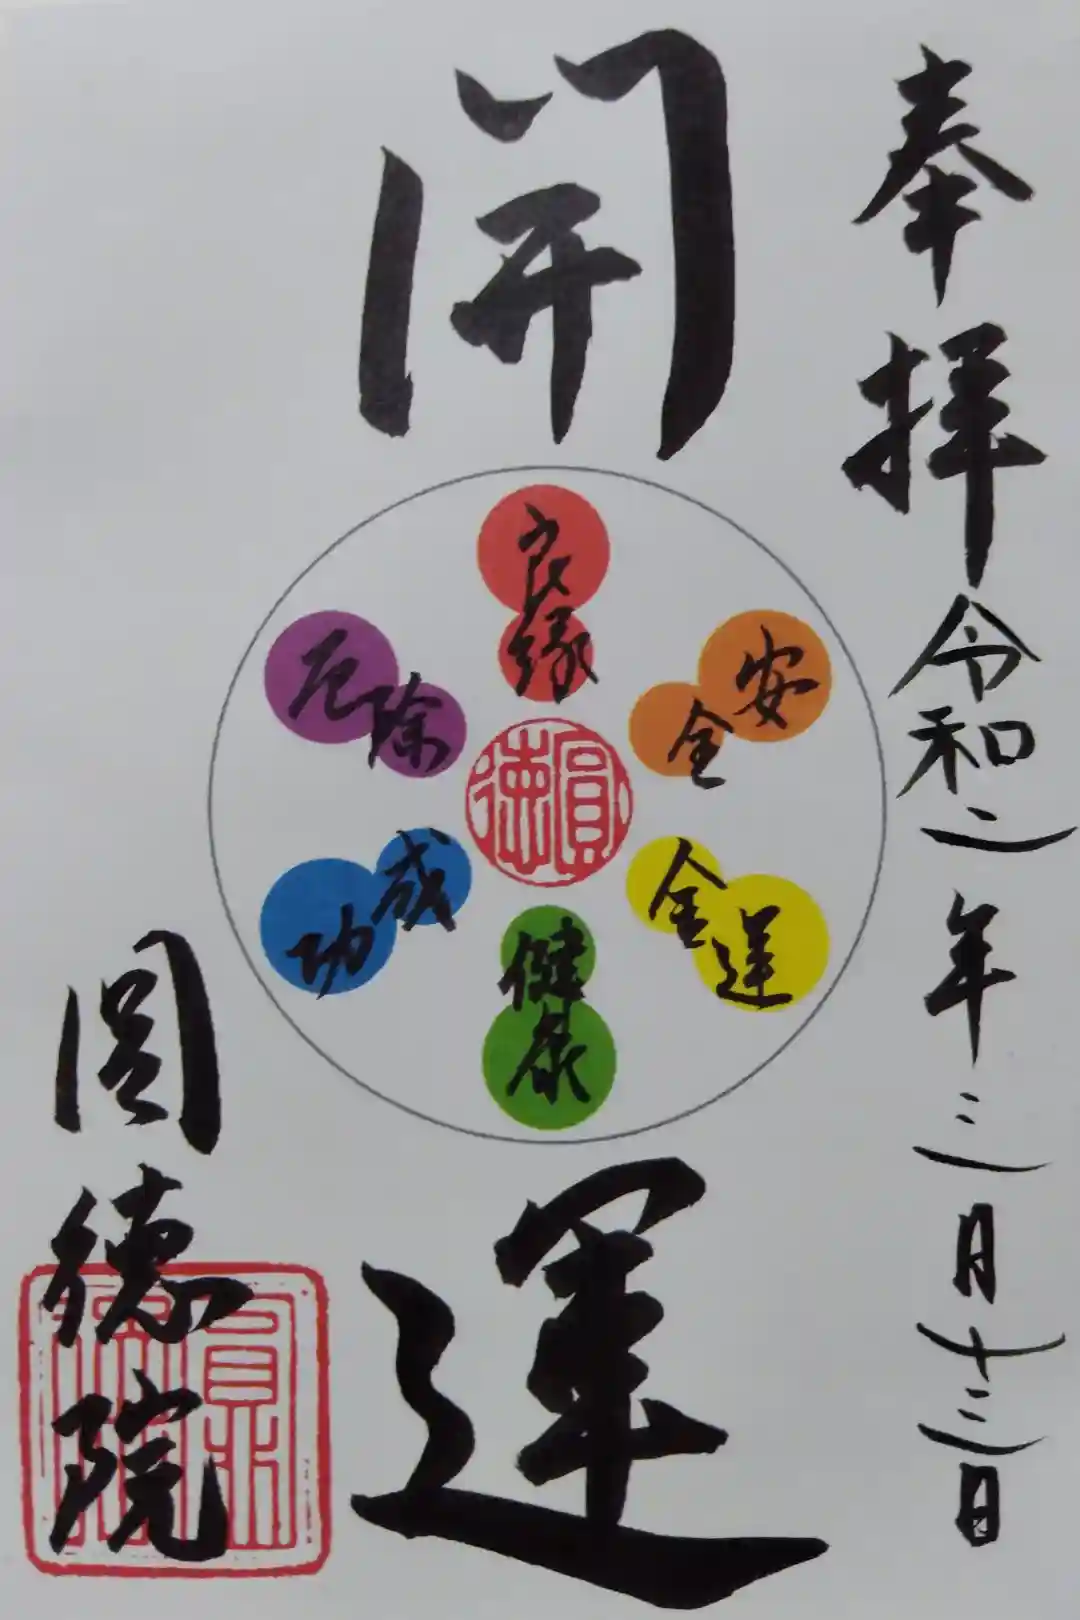 奉拝 令和二年三月十三日
開
良縁
安全
金運
健康
成功
厄除
圓徳
運
圓徳院